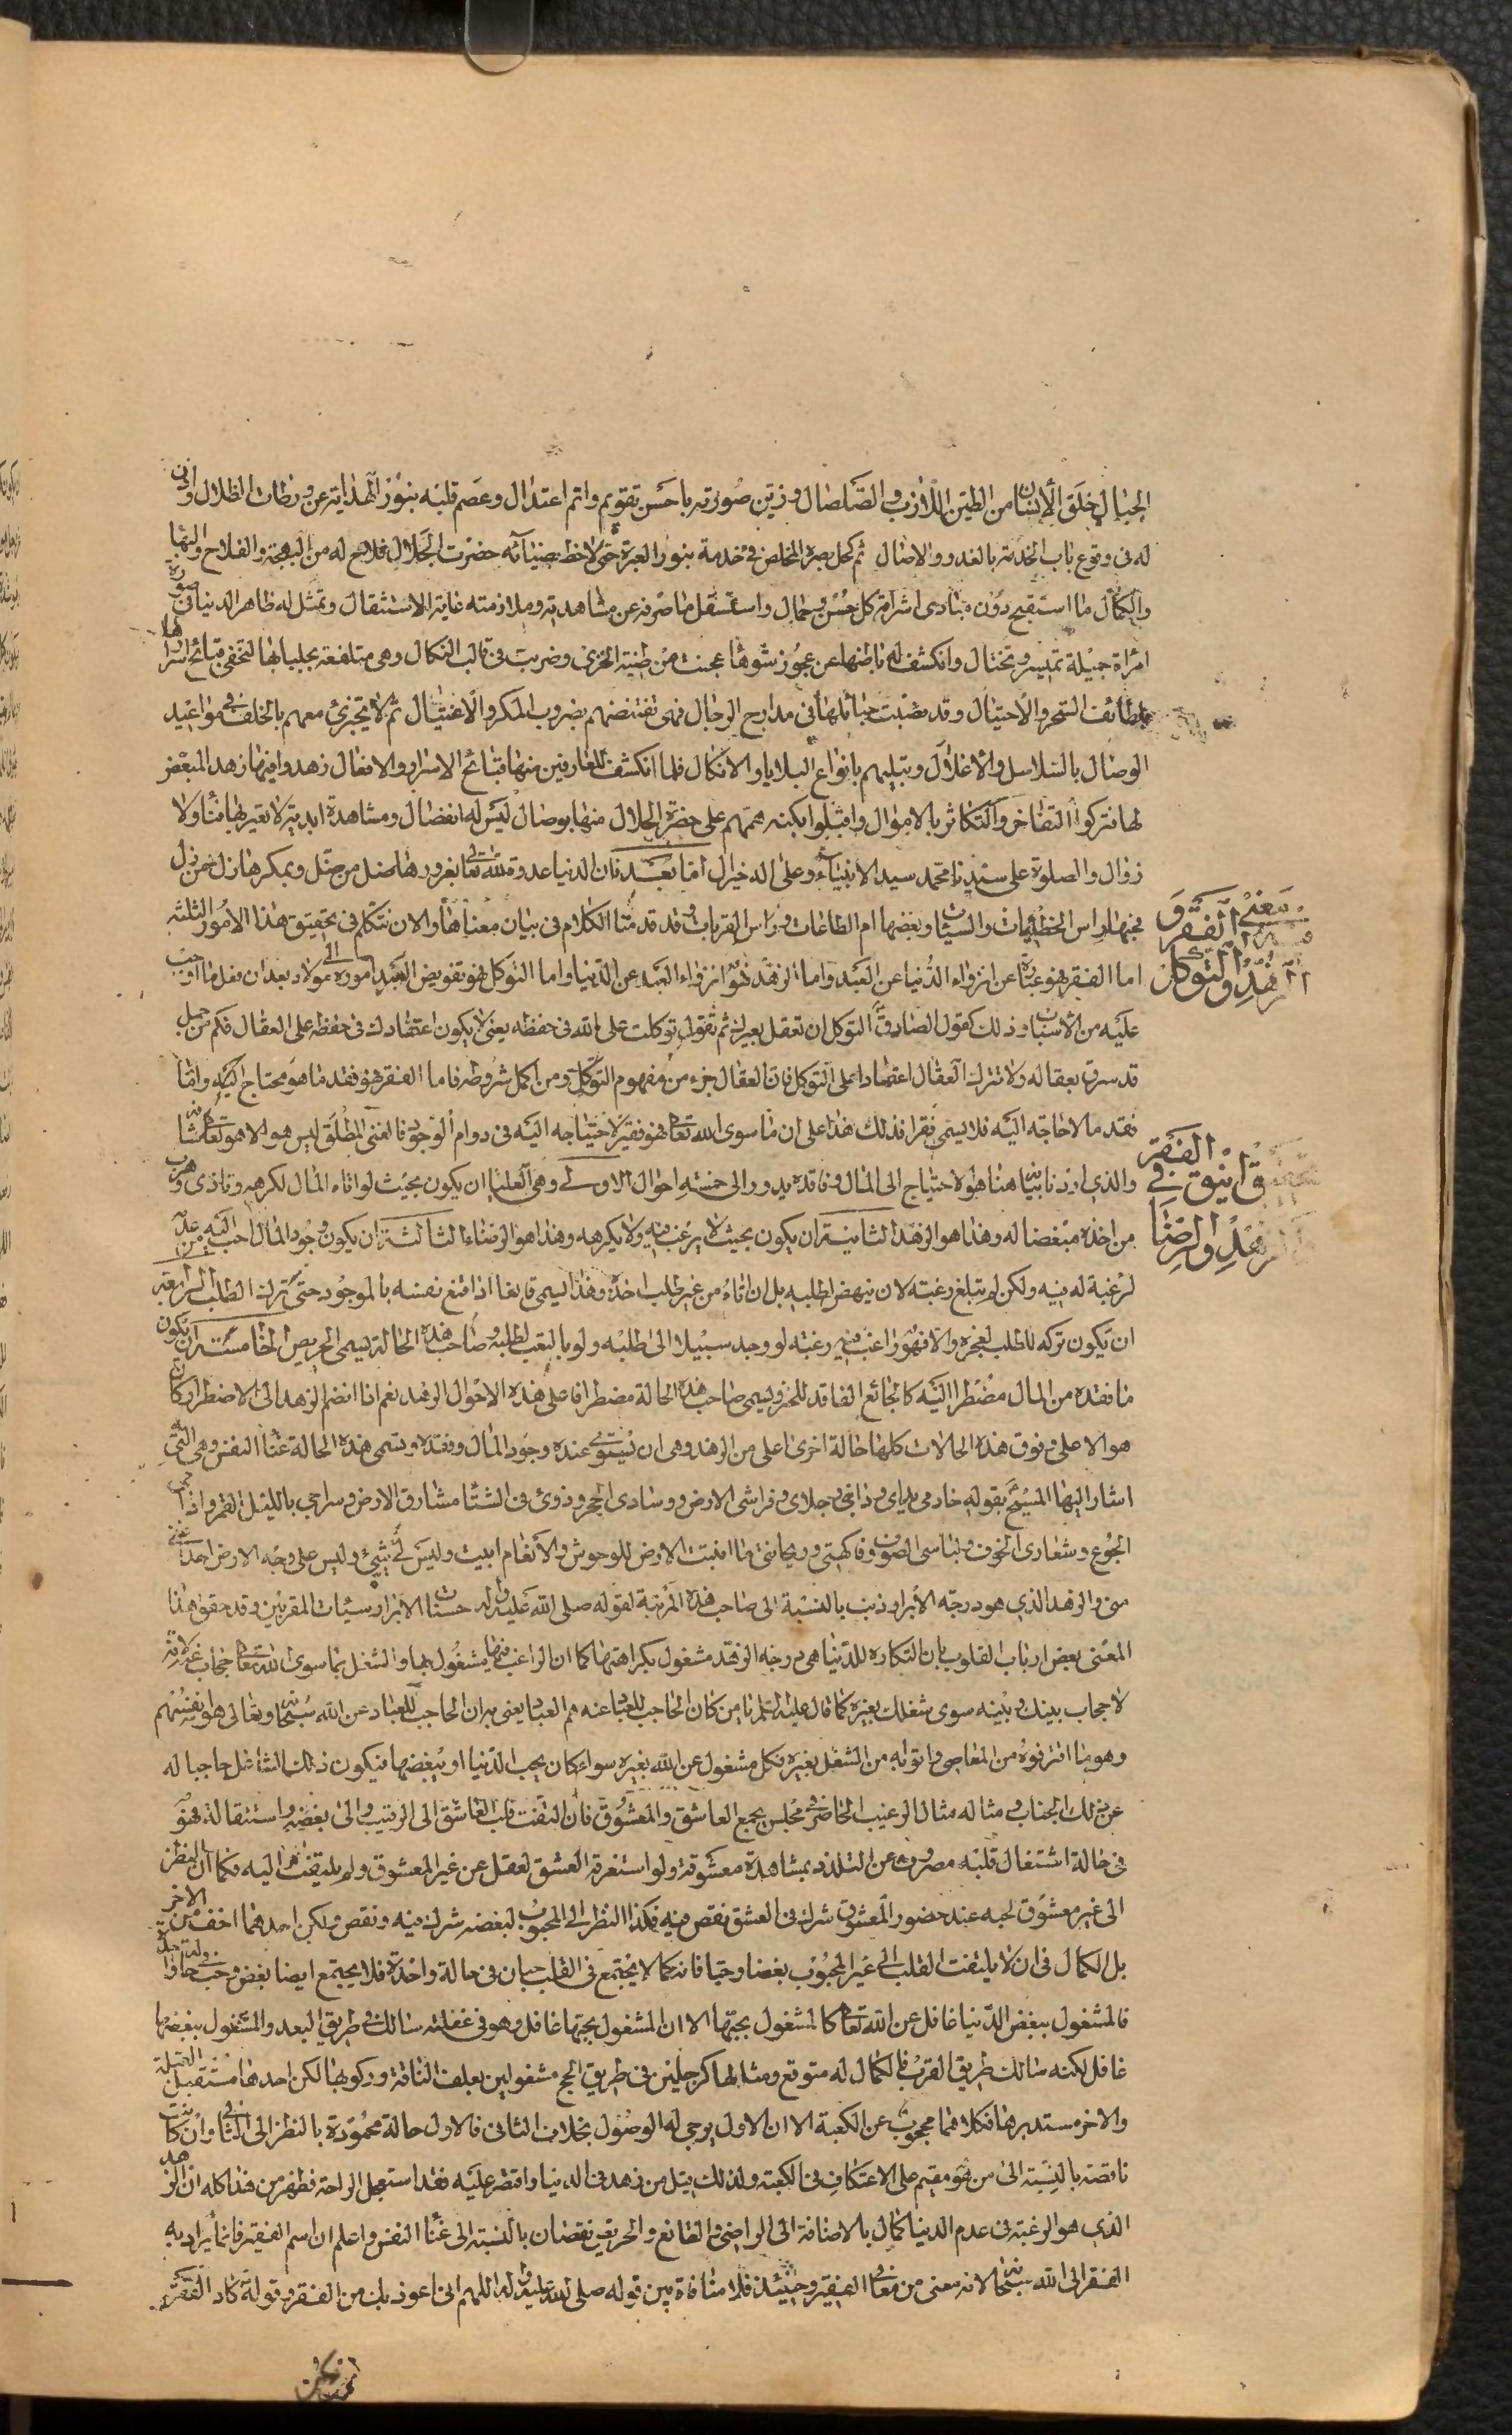 الجبال خلق الانسان من الطين اللازب والصلصال وزين صورته باحسن تقويم واتم اعتدال وعصم قلبه بنور الهداية عن ورطات الظلال واذن
له فى وقوع باب الخدمة بالغدو والاصال ثم كحل بصيرة المخلص فى خدمة بنور العبرة حتى لاحظ بضيائه حضرت الجلال فلاح له من البهجة والفلاح والبها
والكمال ما استقبح دون مبادى اشراقه كل حسن وجمال واستثقل ما صرفه عن مشاهدته وملازمته غاية الاستثقال وتمثل له ظاهر الدنيا فى صورة
امراة جميلة تميس وتختال وانكشف له باطنها عن عجوز شوها عجنت من طينة الخزى وضربت فى قالب النكال وهى متلفعة بجلبابها لتخفى قبائح اسرارها
بلطائف السحر والاحتيال وقد نصبت حبائلها فى مدارج الرجال فهى تقتنصهم بضروب المكر والاغتيال ثم لا تجتزئ معهم بالخلف فى مواعيد
الوصال بالسلاسل والاغلال وتبليهم بانواع البلايا والانكال فلما انكشف للعارفين منها قبائح الاسرار والافعال زهدوا فيها زهد المبغض
لها فتركوا التفاخر والتكاثر بالاموال واقبلوا بكنه هممهم على حضرة الجلال منها بوصال ليس له انفصال ومشاهدة ابدية لا تعتريها فناء ولا
زوال والصلوة على سيدنا محمد سيد الانبياء وعلى اله خير ال اما بعد فان الدنيا عدوة لله تعالى بغرورها ضل من ضل وبمكرها زل من زل
فحبها راس الخطيئات والسيئات وبغضها ام الطاعات وراس القربات وقد قدمنا الكلام فى بيان معناها والان نتكلم فى تحقيق هذا الامور الثلثة
معنى الفقر و
الزهد والتوكل
اما الفقر فهو عبارة عن انزواء الدنيا عن العبد واما الزهد فهو انزواء العبد عن الدنيا واما التوكل فهو تفويض العبد اموره الى مولاه بعد ان فعل ما اوجب
عليه من الاسباب وذلك كقول الصادق التوكل ان تعقل بعيرك ثم تقول توكلت على الله فى حفظه يعنى لا يكون اعتمادك فى حفظه على العقال فكم من جمل
قد سرق بعقاله ولا تترك العقال اعتمادا على التوكل فان العقال جزء من مفهوم التوكل ومن اكمل شروطه فاما الفقر فهو فقد ما هو محتاج اليه واما
فقد ما لا حاجة اليه فلا يسمى فقرا فذلك هذا على ان ما سوى الله تعالى فهو فقير لاحتياجه اليه فى دوام الوجود فالغنى المطلق ليس هو الا هو تعالى شانه
الفقر
تحقيق انيق فى
الزهد والرضا
والذى اردنا بيانه هنا هو الاحتياج الى المال وفاقده يدور الى خمسة احوال الاولى وهى العليا ان يكون بحيث لو اتاه المال لكرهه وتاذى وهرب
من اخذه مبغضا له وهذا هو الزهد الثانية ان يكون بحيث لا يرغب فيه ولا يكرهه وهذا هو الرضاء الثالثة ان يكون وجود المال احب اليه من عدمه
لرغبة له فيه ولكن لم يتبلغ رغبته لان ينهض لطلبه بل ان اتاه من غير طلب اخذه وهذا يسمى قانعا اذا قنع نفسه بالموجود حتى ترك الطلب الرابعة
ان تكون تركه للطلب لعجزه والا فهو راغب فيه رغبته لو وجد سبيلا الى طلبه ولو بالتعب لطلبه وصاحب هذه الحالة يسمى الحريص الخامسة ان يكون
ما فقده من المال مضطرا اليه كالجائع الفاقد للخبز ويسمى صاحب هذه الحالة مضطرا فاعلى هذه الاحوال الزهد نعم اذا انضم الزهد الى الاضطرار كان
هو الاعلى وفوق هذه الحالات كلها حالة اخرى اعلى من الزهد وهى ان يستوى عنده وجود المال وفقده وتسمى هذه الحالة غناء النفس وهى التى
اشار اليها المسيح بقوله خادمى يداى ودابتى رجلاى وفراشى الارض ووسادى الحجر ودوئى فى الشتاء مشارق الارض وسراجى بالليل القمر وادامى
الجوع وشعارى الخوف ولباسى الصوف وفاكهتى وريحانتى ما انبتت الارض للوحوش والانعام ابيت وليس لى شيئ وليس على وجه الارض احد اغنى
منى والزهد الذى هو درجة الابرار ذنب بالنسبة الى صاحب هذه المرتبة لقوله صلى الله عليه واله حسنات الابرار سيئات المقربين وقد حقق هذا
المعنى بعض ارباب القلوب بان الكاره للدنيا هى درجة الزهد مشغول بكراهتها كما ان الراغب فيها مشغول بها والشغل بما سوى الله تعالى حجاب عنه لانه
لا حجاب بينك وبينه سوى شغلك بغيره كما قال عليه السلم يا من كان الحاجب للعباد عنه هم العباد يعنى به ان الحاجب للعباد عن الله سبحانه وتعالى هو انفسهم
وهو ما اقترفوه من المعاصى واتوا به من الشغل بغيره فكل مشغول عن الله بغيره سواء كان يحب الدنيا او يبغضها فيكون ذلك الشاغل حاجبا له
عن ذلك الجناب ومثاله مثال الرقيب الحاضر فى مجلس يجمع العاشق والمعشوق فان التفت قلب العاشق الى الرقيب والى بغضه واستثقاله فهو
فى حالة اشتغال قلبه مصروف عن التلذذ بمشاهدة معشوقه ولو استغرقه العشق لغفل عن غير المعشوق ولم يلتفت اليه فكما ان النظر
الى غير معشوق لحبه عند حضور المعشوق شرك فى العشق ونقص فيه فكذا النظر الى المحبوب لبغضه شرك فيه ونقص ولكن احدهما اخف من الاخر
بل الكمال فى ان لا يلتفت القلب الى غير المحبوب بغضا وحبا فانه كما لا يجتمع فى القلب حبان فى حالة واحدة فلا يجتمع ايضا بغض وحب فى حالة واحدة
فالمشغول ببغض الدنيا غافل عن الله تعالى كالمشغول بحبها الا ان المشغول بحبها غافل وهو فى غفلته سالك فى طريق البعد والمشغول ببغضها
غافل لكنه سالك طريق القرب فالكمال له متوقع ومثالها كرجلين فى طريق الحج مشغولين بعلف الناقة وركوبها لكن احدهما مستقبل القبلة
والاخر مستدبرها فكلاهما محجوب عن الكعبة الا ان الاول يرجى له الوصول بخلاف الثانى فالاول حالة محمودة بالنظر الى الثانى وان كانت
ناقصة بالنسبة الى من هو مقيم على الاعتكاف فى الكعبة ولذلك قيل من زهد فى الدنيا واقتصر عليه فقد استعجل الراحة فظهر من هذا كله ان الزهد
الذى هو الرغبة فى عدم الدنيا كمال بالاضافة الى الراضى والقانع والحريص نقصان بالنسبة الى غناء النفس واعلم ان اسم الفقير فانما يراد به
الفقر الى الله سبحانه لانه معنى من معانى الفقير وحينئذ فلا منافاة بين قوله صلى الله عليه واله اللهم انى اعوذ بك من الفقر وقوله كاد الفقر